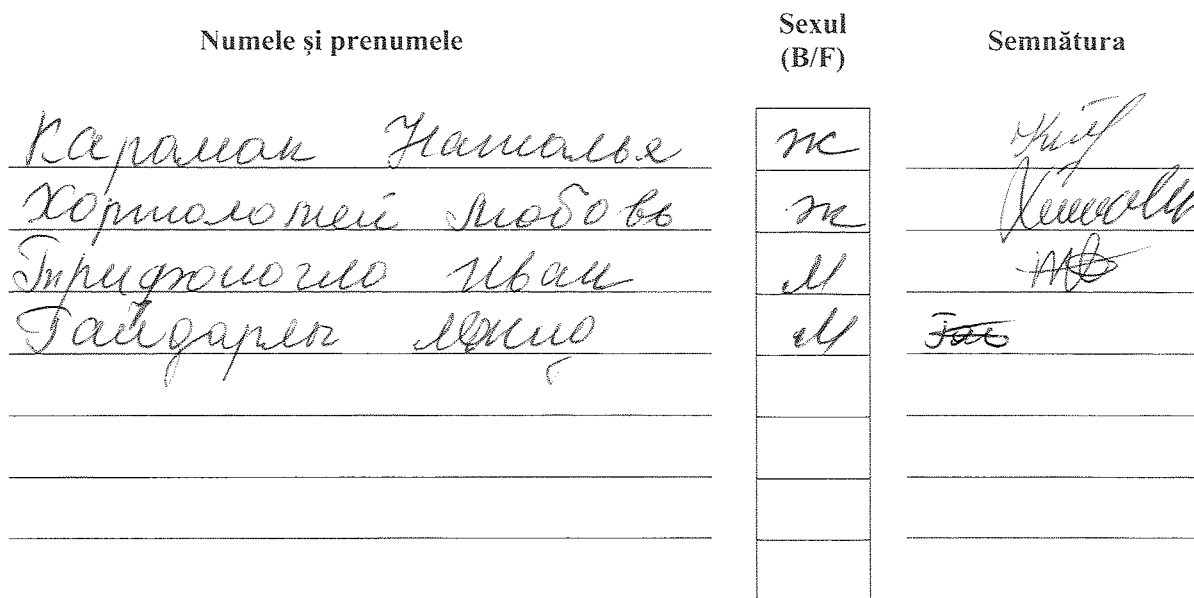 Numele și prenumele Sexul (B/F) Semnătura
Караман Наталья ж
Хортоломей Любовь ж
Трифоногло Иван М
Гайдарлы М